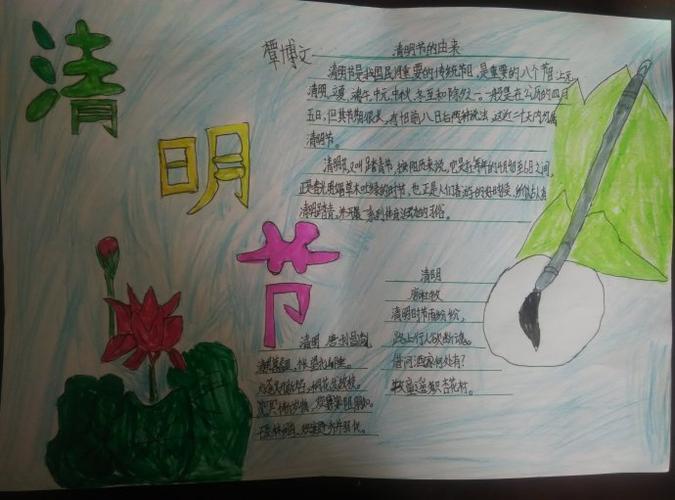 清
明
节
覃博文
清明节的由来
清明节是我国民间重要的传统节日，是重要的八个节日上元
清明、立夏、端午、中元、中秋、冬至和除夕之一。一般是在公历的四月
五日，但其节期很长，有10日前8日后两种说法，这近二十天内均属
清明节。
清明节又叫踏青节，按阳历来说，它是在每年的4月4日至6日之间，
正是春光明媚草木吐绿的时节，也正是人们春游的好时候，所以古人有
清明踏青，并开展一系列体育活动的习俗。
清明
唐杜牧
清明时节雨纷纷，
路上行人欲断魂。
借问酒家何处有？
牧童遥知杏花村。
清明